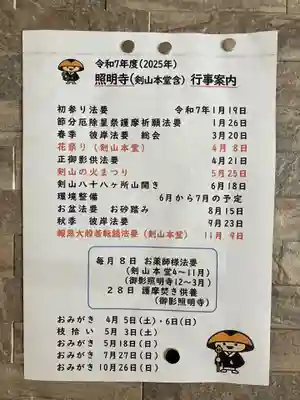 令和7年度(2025年)
照明寺(剣山本堂含) 行事案内
初参り法要 令和7年1月19日
節分厄除星祭護摩祈願法要 1月26日
春季 彼岸法要 総会 3月20日
花祭り(剣山本堂) 4月 8日
正御影供法要 4月21日
剣山の火まつり 5月25日
剣山八十八ヶ所山開き 6月18日
環境整備 6月から7月の予定
お盆法要 お砂踏み 8月15日
秋季 彼岸法要 9月23日
大般若転読法要(剣山本堂) 11月 9日
毎月8日 お薬師様法要
(剣山本堂4~11月)
(御影照明寺12~3月)
28日 護摩焚き供養
(御影照明寺)
おみがき 4月5日(土)・6日(日)
枝拾い 5月3日(土)
おみがき 5月18日(日)
おみがき 7月27日(日)
おみがき 10月26日(日)